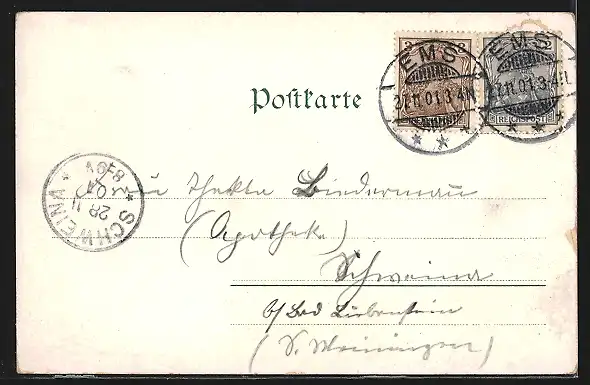 3 2
EMS EMS
27.11.01.3-4N. 27.11.01.3-4N.
REICHSPOST
Postkarte
SCHWEINA
28 11 01
8-9V
Frau Thekla Biedermann
(Apotheke)
Schweina
b/ Bad Liebenstein
(S. Meiningen)